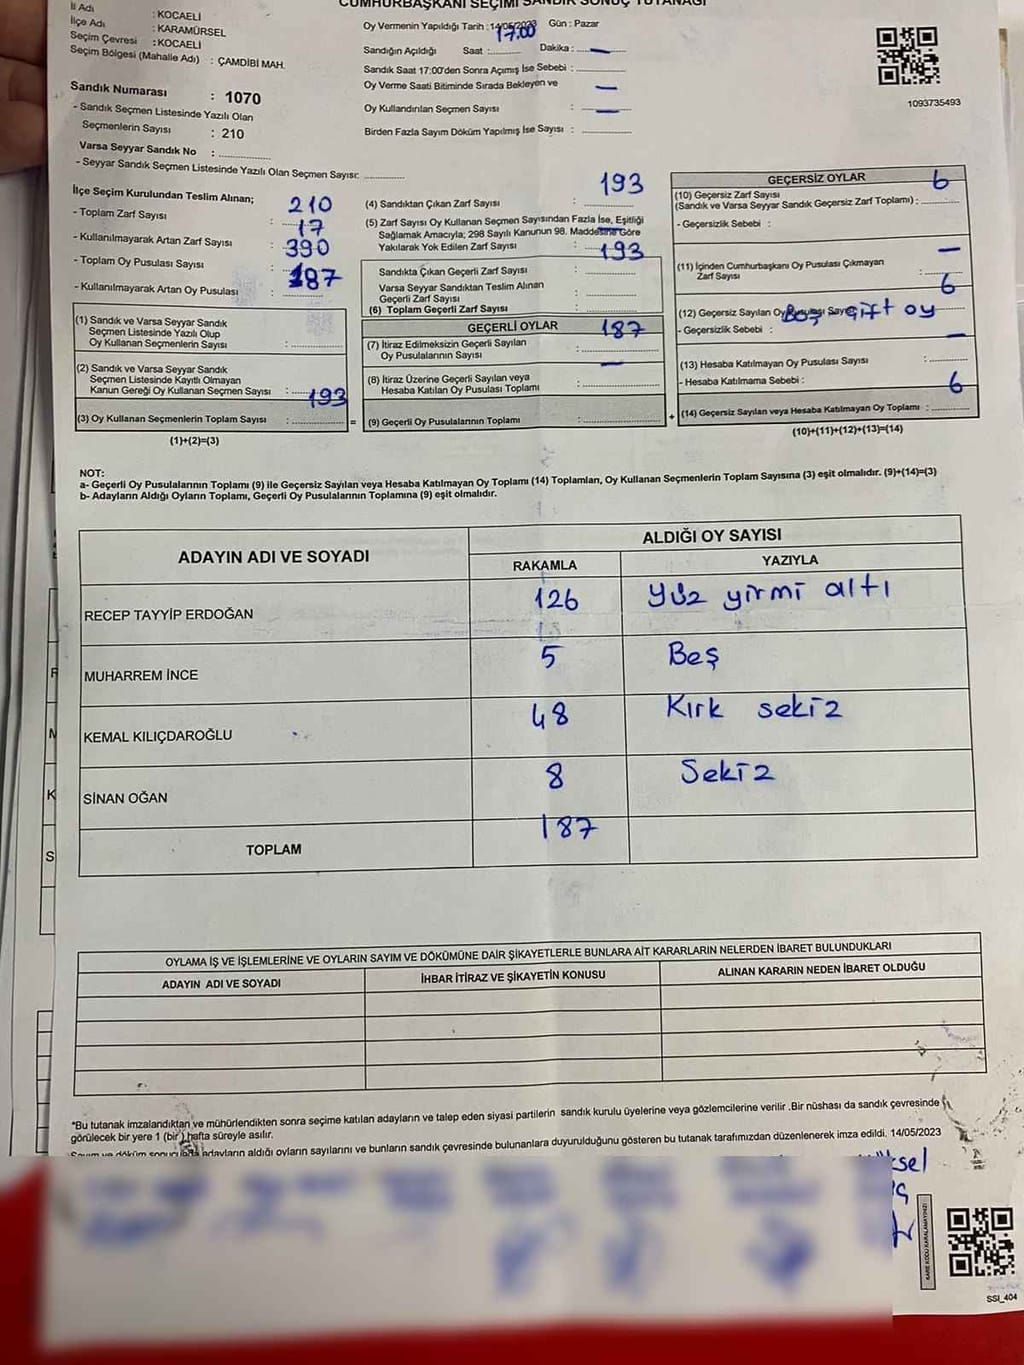 CUMHURBAŞKANI SEÇİMİ SANDIK SONUÇ TUTANAĞI
İl Adı : KOCAELİ
İlçe Adı : KARAMÜRSEL
Seçim Çevresi : KOCAELİ
Seçim Bölgesi (Mahalle Adı) : ÇAMDİBİ MAH.
Sandık Numarası : 1070
- Sandık Seçmen Listesinde Yazılı Olan
Seçmenlerin Sayısı : 210
Varsa Seyyar Sandık No :
- Seyyar Sandık Seçmen Listesinde Yazılı Olan Seçmen Sayısı:
Oy Vermenin Yapıldığı Tarih : 14/05/2023 Gün : Pazar
17.00
Sandığın Açıldığı Saat : Dakika : —
Sandık Saat 17:00'den Sonra Açımış İse Sebebi :
Oy Verme Saati Bitiminde Sırada Bekleyen ve —
Oy Kullandırılan Seçmen Sayısı : —
Birden Fazla Sayım Döküm Yapılmış İse Sayısı :
1093735493
İlçe Seçim Kurulundan Teslim Alınan;
- Toplam Zarf Sayısı : 210
- Kullanılmayarak Artan Zarf Sayısı : 17
- Toplam Oy Pusulası Sayısı : 390
- Kullanılmayarak Artan Oy Pusulası : 187
(1) Sandık ve Varsa Seyyar Sandık
Seçmen Listesinde Yazılı Olup
Oy Kullanan Seçmenlerin Sayısı :
(2) Sandık ve Varsa Seyyar Sandık
Seçmen Listesinde Kayıtlı Olmayan
Kanun Gereği Oy Kullanan Seçmen Sayısı :
193
(3) Oy Kullanan Seçmenlerin Toplam Sayısı :
(1)+(2)=(3)
193
(4) Sandıktan Çıkan Zarf Sayısı :
(5) Zarf Sayısı Oy Kullanan Seçmen Sayısından Fazla İse, Eşitliği
Sağlamak Amacıyla; 298 Sayılı Kanunun 98. Maddesine Göre
Yakılarak Yok Edilen Zarf Sayısı : —
193
Sandıkta Çıkan Geçerli Zarf Sayısı :
Varsa Seyyar Sandıktan Teslim Alınan
Geçerli Zarf Sayısı :
(6) Toplam Geçerli Zarf Sayısı :
GEÇERLİ OYLAR
187
(7) İtiraz Edilmeksizin Geçerli Sayılan
Oy Pusulalarının Sayısı :
—
(8) İtiraz Üzerine Geçerli Sayılan veya
Hesaba Katılan Oy Pusulası Toplamı :
= (9) Geçerli Oy Pusulalarının Toplamı :
GEÇERSİZ OYLAR
6
(10) Geçersiz Zarf Sayısı
(Sandık ve Varsa Seyyar Sandık Geçersiz Zarf Toplamı) :
- Geçersizlik Sebebi :
—
(11) İçinden Cumhurbaşkanı Oy Pusulası Çıkmayan
Zarf Sayısı :
6
(12) Geçersiz Sayılan Oy Pusulası Sayısı
Boş çift oy
- Geçersizlik Sebebi :
—
(13) Hesaba Katılmayan Oy Pusulası Sayısı :
- Hesaba Katılmama Sebebi :
6
+ (14) Geçersiz Sayılan veya Hesaba Katılmayan Oy Toplamı :
(10)+(11)+(12)+(13)=(14)
NOT:
a- Geçerli Oy Pusulalarının Toplamı (9) ile Geçersiz Sayılan veya Hesaba Katılmayan Oy Toplamı (14) Toplamları, Oy Kullanan Seçmenlerin Toplam Sayısına (3) eşit olmalıdır. (9)+(14)=(3)
b- Adayların Aldığı Oyların Toplamı, Geçerli Oy Pusulalarının Toplamına (9) eşit olmalıdır.
ADAYIN ADI VE SOYADI
ALDIĞI OY SAYISI
RAKAMLA YAZIYLA
RECEP TAYYİP ERDOĞAN 126 Yüz yirmi altı
MUHARREM İNCE 5 Beş
KEMAL KILIÇDAROĞLU 48 Kırk sekiz
SİNAN OĞAN 8 Sekiz
TOPLAM 187
OYLAMA İŞ VE İŞLEMLERİNE VE OYLARIN SAYIM VE DÖKÜMÜNE DAİR ŞİKAYETLERLE BUNLARA AİT KARARLARIN NELERDEN İBARET BULUNDUKLARI
ADAYIN ADI VE SOYADI İHBAR İTİRAZ VE ŞİKAYETİN KONUSU ALINAN KARARIN NEDEN İBARET OLDUĞU
*Bu tutanak imzalandıktan ve mühürlendikten sonra seçime katılan adayların ve talep eden siyasi partilerin sandık kurulu üyelerine veya gözlemcilerine verilir .Bir nüshası da sandık çevresinde
görülecek bir yere 1 (bir) hafta süreyle asılır.
adayların aldığı oyların sayılarını ve bunların sandık çevresinde bulunanlara duyurulduğunu gösteren bu tutanak tarafımızdan düzenlenerek imza edildi. 14/05/2023
KARE KODU KARALAMAYINIZ!
SSI_404